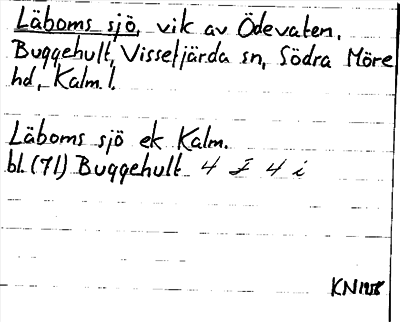 Läboms sjö, vik av Ödevaten,
Buggehult, Vissefjärda sn, Södra Möre
hd, Kalm. l.
Läboms sjö ek Kalm.
bl. (71) Buggehult 4 F 4 i
KN 1958